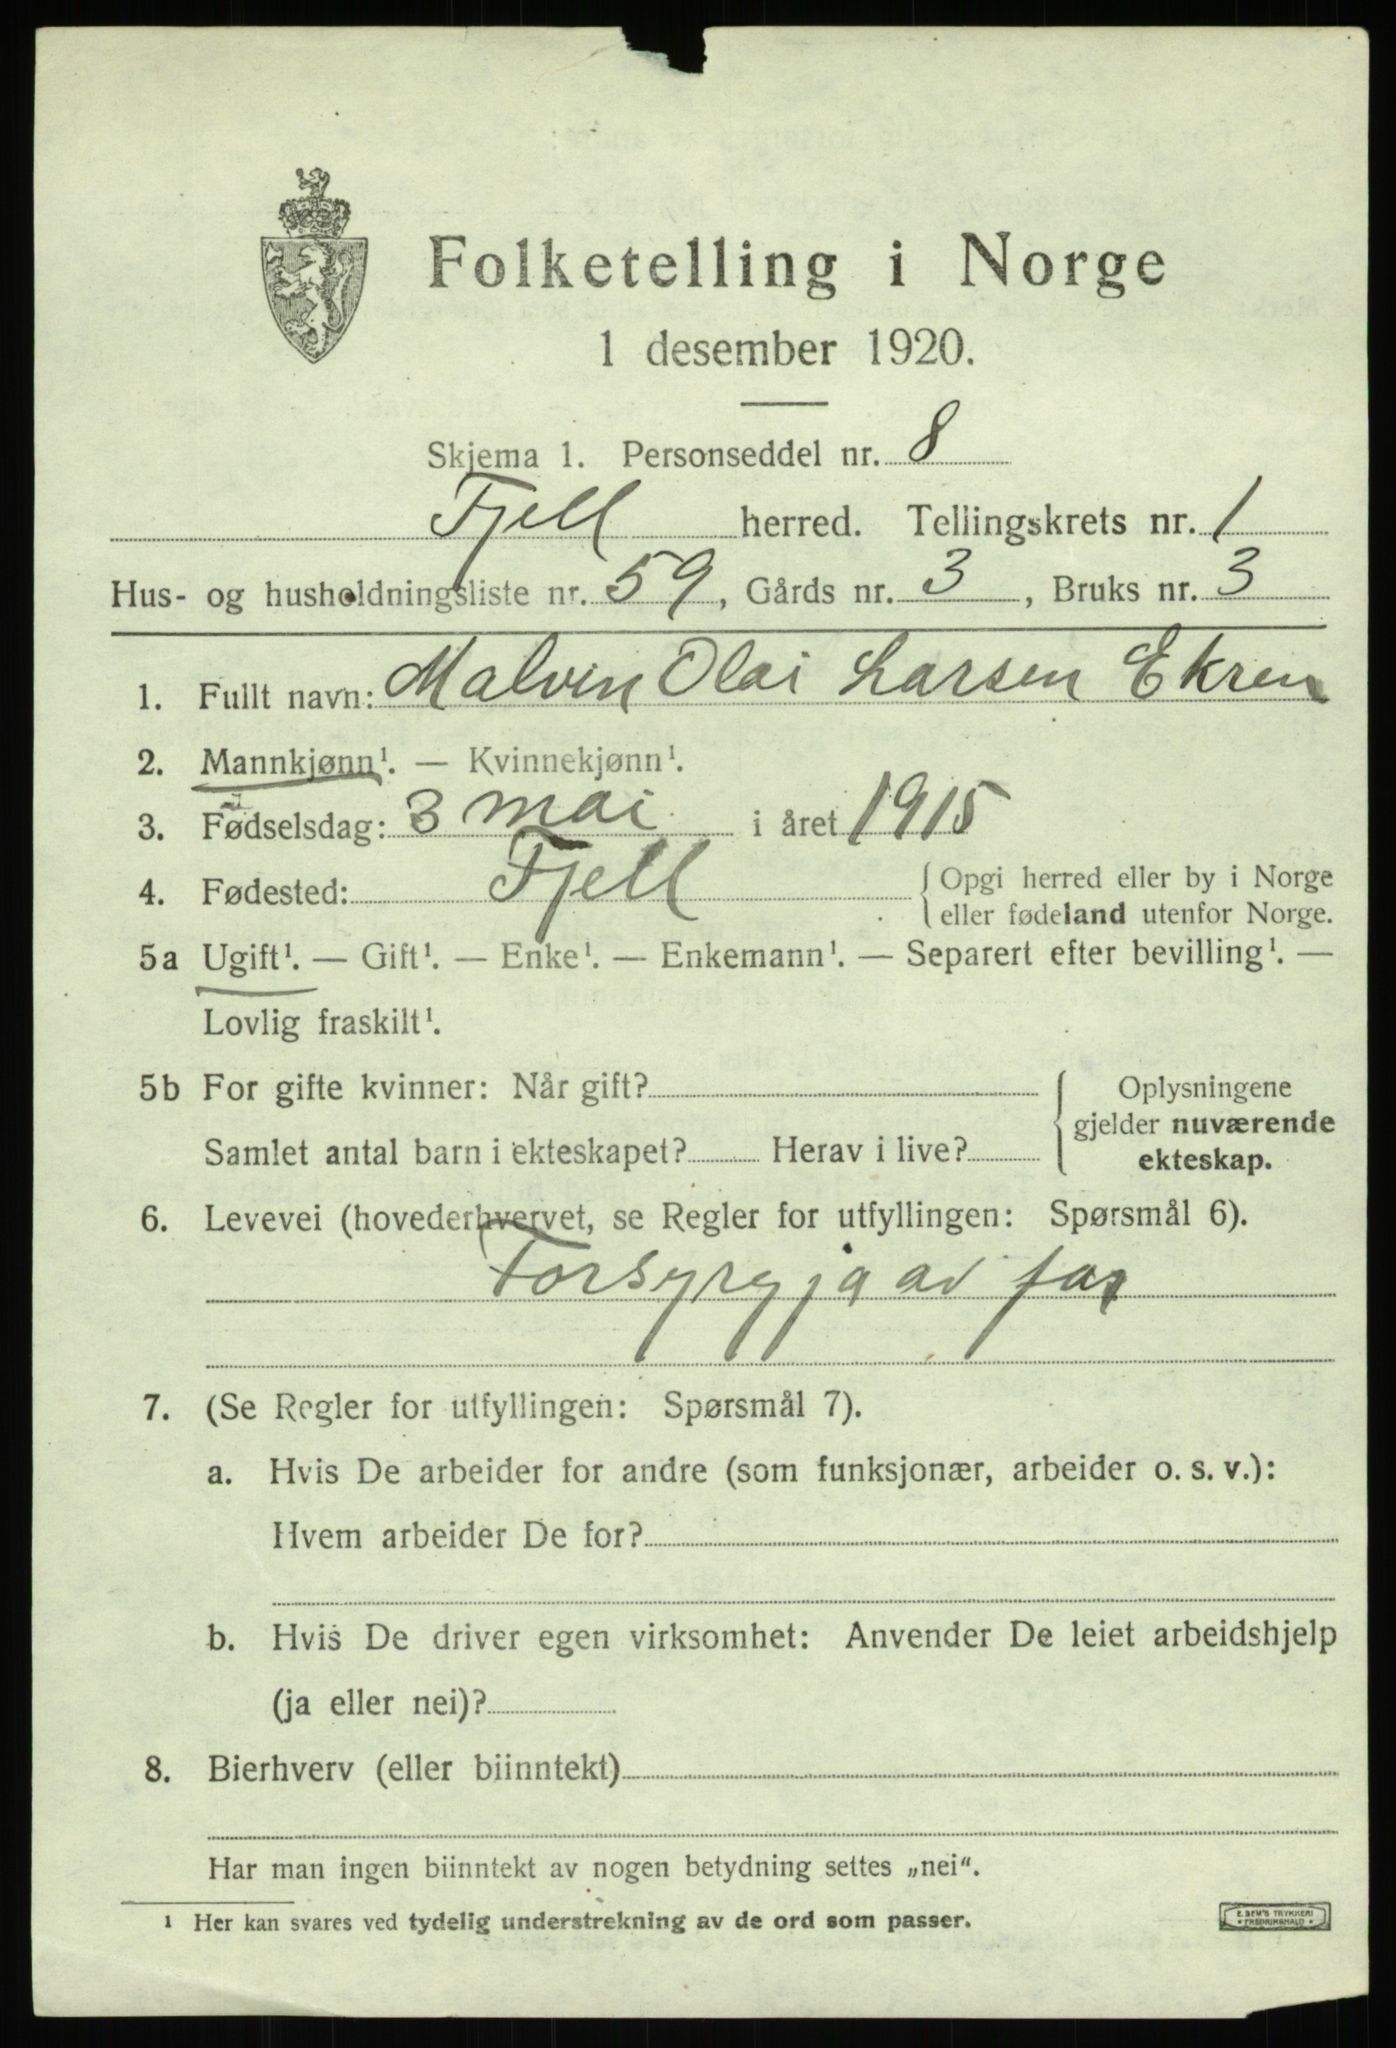 Folketelling i Norge
1 desember 1920.
Skjema 1. Personseddel nr. 8
Fjell herred. Tellingskrets nr. 1
Hus- og husholdningsliste nr. 59, Gårds nr. 3, Bruks nr. 3
1. Fullt navn: Malvin Olai Larsen Ekren
2. Mannkjønn¹. — Kvinnekjønn¹.
3. Fødselsdag: 3 mai i året 1915
4. Fødested: Fjell { Opgi herred eller by i Norge
eller fødeland utenfor Norge.
5a Ugift¹. — Gift¹. — Enke¹. — Enkemann¹. — Separert efter bevilling¹. —
Lovlig fraskilt¹.
5b For gifte kvinner: Når gift? { Oplysningene
gjelder nuværende
Samlet antal barn i ekteskapet? Herav i live? ekteskap.
6. Levevei (hovederhvervet, se Regler for utfyllingen: Spørsmål 6).
Forsyrgja av far
7. (Se Regler for utfyllingen: Spørsmål 7).
a. Hvis De arbeider for andre (som funksjonær, arbeider o. s. v.):
Hvem arbeider De for?
b. Hvis De driver egen virksomhet: Anvender De leiet arbeidshjelp
(ja eller nei)?
8. Bierhverv (eller biinntekt)
Har man ingen biinntekt av nogen betydning settes „nei“.
¹ Her kan svares ved tydelig understrekning av de ord som passer.
E. SEM'S TRYKKERI
FREDRIKSHALD